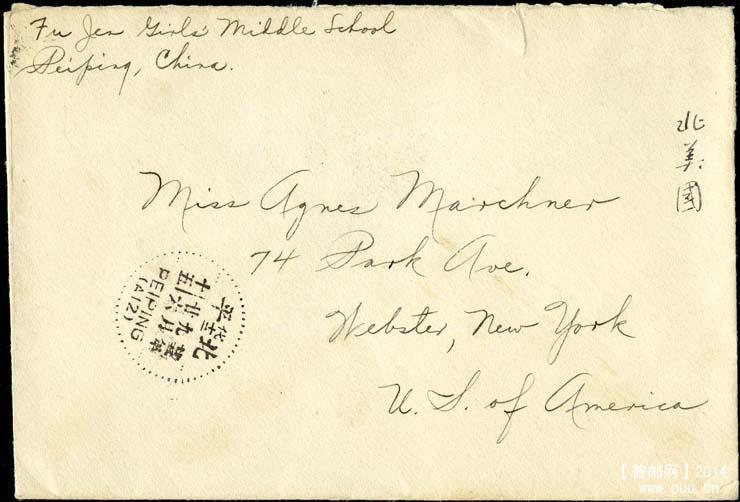 Fu Jen Girls' Middle School
Peiping, China.
北美國
Miss Agnes Marchner
74 Park Ave.
Webster, New York
U. S. of America
北平
PEIPING
(A12)
【普邮网】2014
www.puu.cn